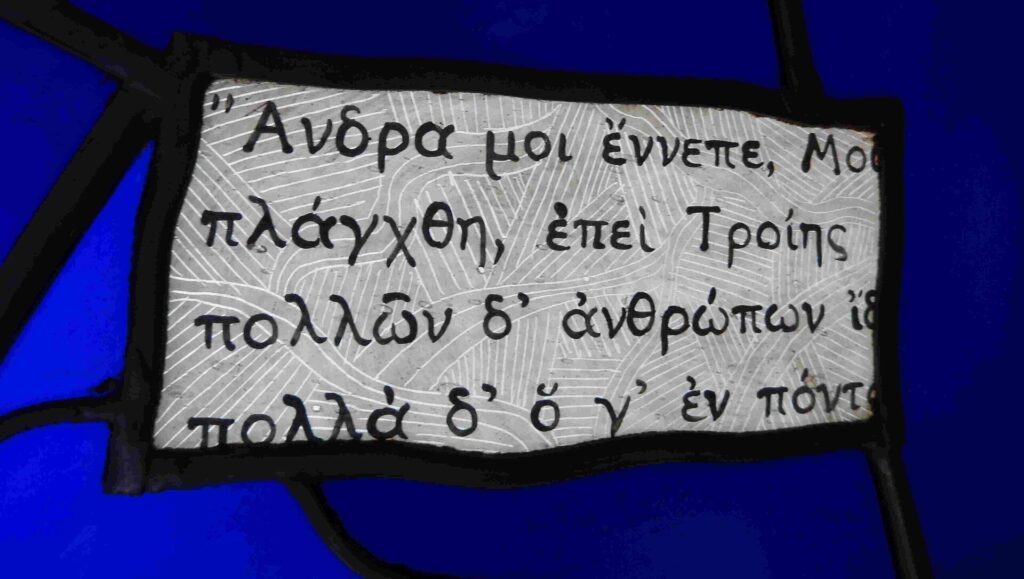 Ἄνδρα μοι ἔννεπε,
πλάγχθη, ἐπεὶ Τροίης
πολλῶν δ' ἀνθρώπων
πολλὰ δ' ὅ γ' ἐν